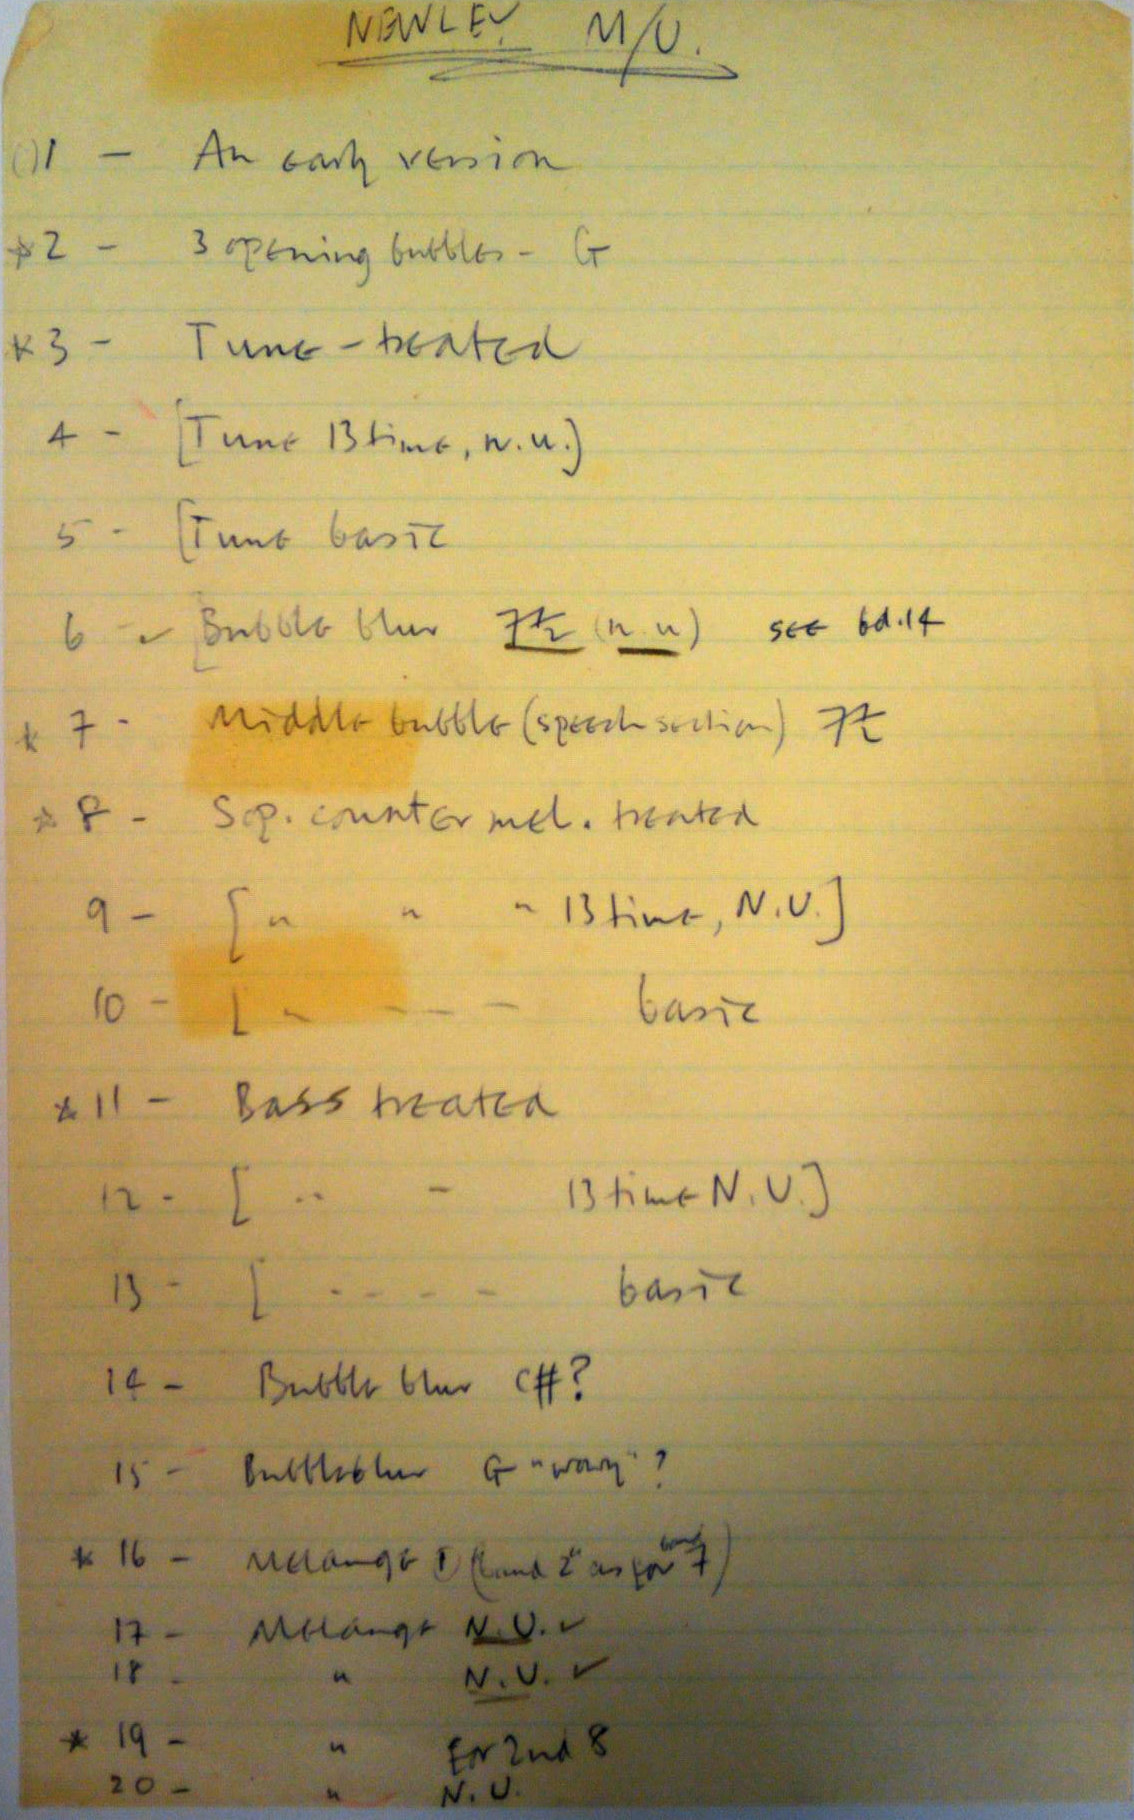 NEWLEY M/U.
()1 - An early version
*2 - 3 opening bubbles - G
*3 - Tune - treated
4 - [Tune 13 time, n.u.]
5 - [Tune basic
6 - ✓ [Bubble blur (n.u) see bd.14
*7 - Middle bubble (speech section)
*8 - Sop. counter mel. treated
9 - [" " " 13 time, N.U.]
10 - [" - - - basic
*11 - Bass treated
12 - [ " " 13 time N.U.]
13 - [ - - - - basic
14 - Bubble blur C#?
15 - Bubble blur G "wavy"?
*16 - Melange ① (1 and 2 as for 7)
17 - Melange N.U. ✓
18 - " N.U. ✓
*19 - " for 2nd 8
20 - " N.U.